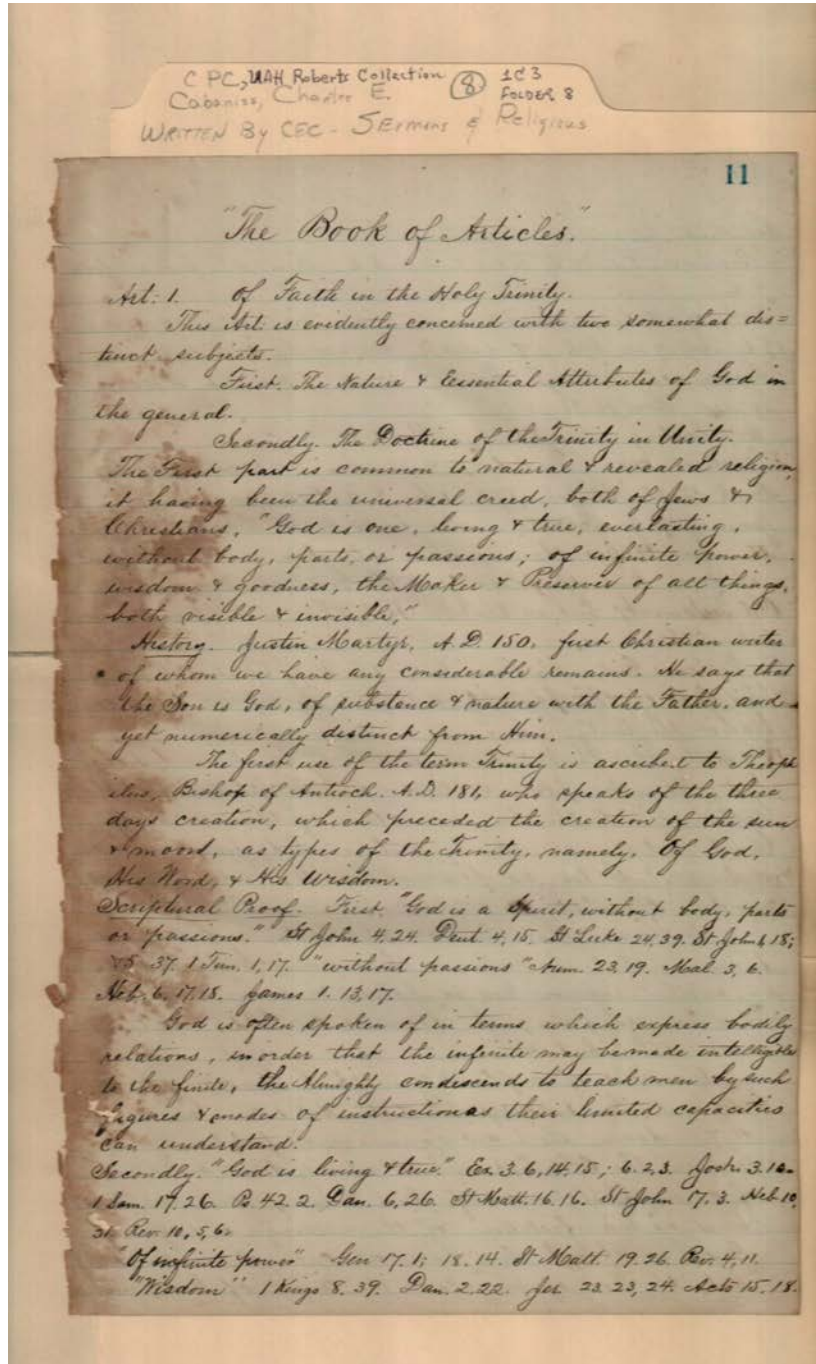 CPC, UAH Roberts Collection (8) 1C3
Cabaniss, Charles E. FOLDER 8
WRITTEN BY CEC - SERMONS & Religious
11
"The Book of Articles."
Art: 1. Of Faith in the Holy Trinity.
This Art. is evidently concerned with two somewhat dis=
tinct subjects.
First. The Nature & Eessential Attributes of God in
the general.
Secondly. The Doctrine of the Trinity in Unity.
The First part is common to natural & revealed religion,
it having been the universal creed, both of Jews &
Christians, "God is one, living & true, everlasting,
without body, parts, or passions; of infinite power,
wisdom & goodness, the Maker & Preserver of all things,
both visible & invisible,"
History. Justin Martyr, A.D. 150, first Christian writer
of whom we have any considerable remains. He says that
the Son is God, of substance & nature with the Father, and
yet numerically distinct from Him.
The first use of the term Trinity is ascribed to Theoph
ilus, Bishop of Antioch. A.D. 181, who speaks of the three
days creation, which preceded the creation of the sun
& moon, as types of the Trinity, namely, Of God,
His Word, & His Wisdom.
Scriptural Proof. First. "God is a Spirit, without body, parts
or passions." St John 4,24. Deut. 4,15. St Luke 24,39. St John 1,18;
& 5. 37. 1 Tim. 1,17. "without passions" Num. 23.19. Mal. 3,6.
Heb. 6, 17,18. James 1. 13,17.
God is often spoken of in terms which express bodily
relations, in order that the infinite may be made intelligible
to the finite, the Almighty condiscends to teach men by such
figures & modes of instruction as their limited capacities
can understand.
Secondly. "God is living & true." Ex. 3. 6,14,15,; 6. 2,3. Josh. 3.10
1 Sam. 17.26. Ps. 42.2. Dan. 6,26. St Matt. 16.16. St John 17.3. Heb 10,
31. Rev. 10,5,6.
"Of infinite power" Gen 17.1; 18.14. St Matt. 19.26. Rev. 4,11.
"Wisdom" 1 Kings 8.39. Dan. 2.22. Jer. 23.23,24. Acts 15.18.